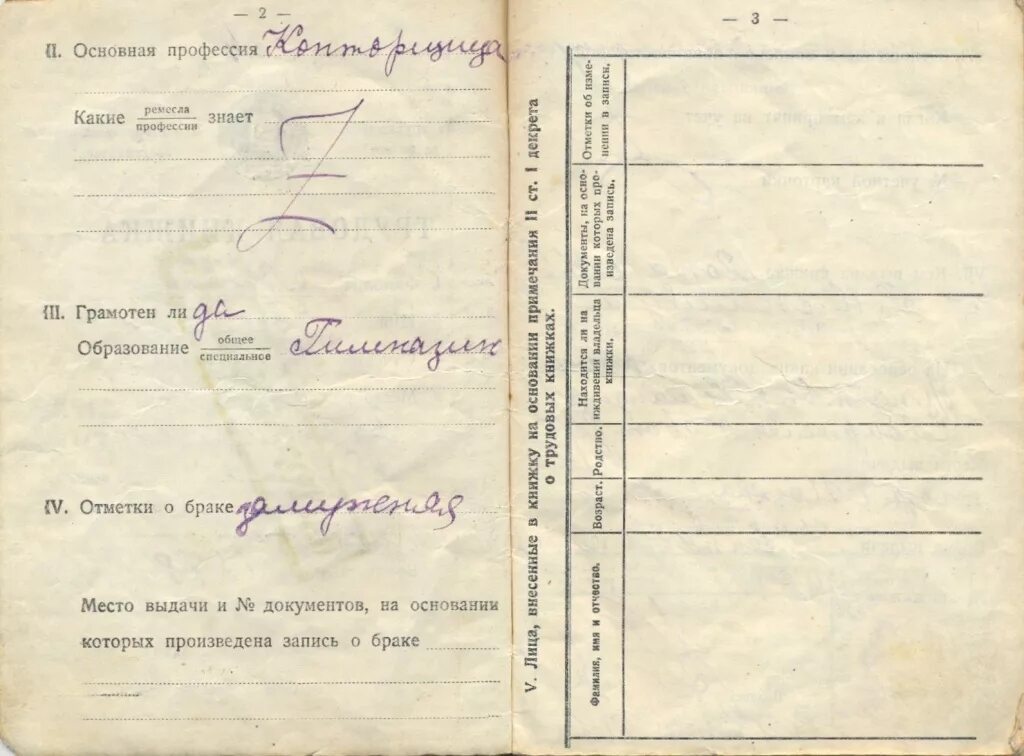 — 2 —
II. Основная профессия Конторщица
Какие ремесла
профессии знает
III. Грамотен ли да
Образование общее
специальное Гимназия
IV. Отметки о браке замужняя
Место выдачи и № документов, на основании
которых произведена запись о браке
— 3 —
V. Лица, внесенные в книжку на основании примечания II ст. I декрета
о трудовых книжках.
Фамилия, имя и отчество.
Возраст.
Родство.
Находится ли на
иждивении владельца
книжки.
Документы, на осно-
вании которых про-
изведена запись.
Отметки об изме-
нении в записи.